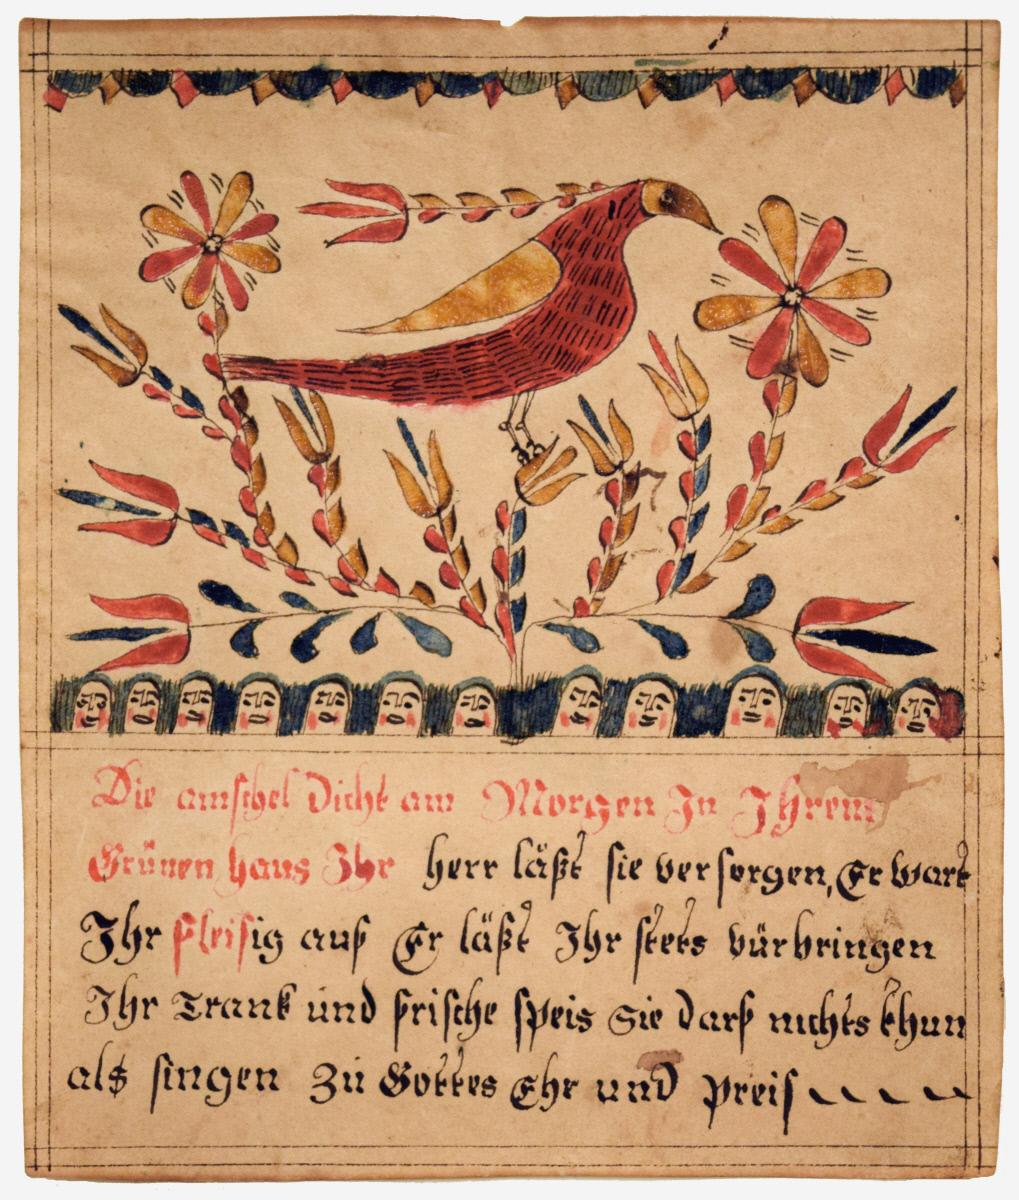 Die amschel Dicht am Morgen In Ihrem
Grünen haus Ihr herr läßt sie versorgen, Er wart
Ihr fleisig auf Er läßt Ihr stets vürbringen
Ihr Trank und frische speis Sie darf nichts thun
als singen Zu Gottes Ehr und preis